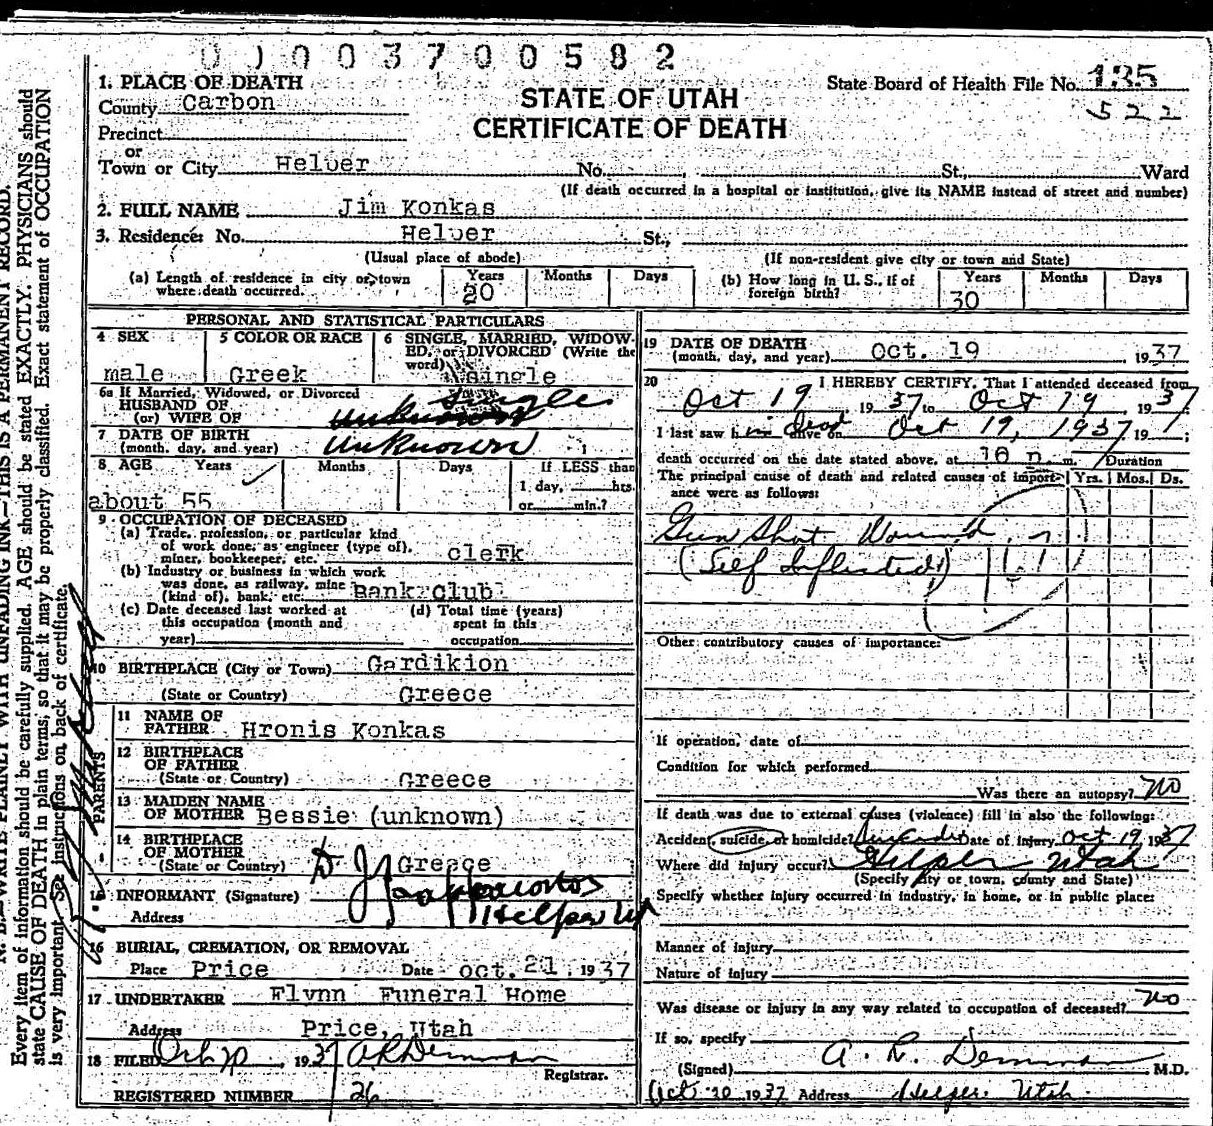 0 0 0 3 7 0 0 5 8 2
1. PLACE OF DEATH
County Carbon
Precinct
or
Town or City Helper No. St., Ward
(If death occurred in a hospital or institution, give its NAME instead of street and number)
STATE OF UTAH
CERTIFICATE OF DEATH
State Board of Health File No. 135
522
2. FULL NAME Jim Konkas
3. Residence: No. Helper St.,
(Usual place of abode) (If non-resident give city or town and State)
(a) Length of residence in city or town where death occurred. Years 20 Months Days
(b) How long in U. S., if of foreign birth? Years 30 Months Days
PERSONAL AND STATISTICAL PARTICULARS
4 SEX male
5 COLOR OR RACE Greek
6 SINGLE, MARRIED, WIDOWED, or DIVORCED (Write the word) Single
6a If Married, Widowed, or Divorced
HUSBAND OF Single
(or) WIFE OF unknown
7 DATE OF BIRTH
(month, day, and year) unknown
8 AGE Years Months Days If LESS than
1 day, hrs.
or min.?
about 55
9 OCCUPATION OF DECEASED
(a) Trade, profession, or particular kind
of work done, as engineer (type of),
miner, bookkeeper, etc. clerk
(b) Industry or business in which work
was done, as railway, mine
(kind of), bank, etc. Bank Club
(c) Date deceased last worked at
this occupation (month and
year)
(d) Total time (years)
spent in this
occupation
10 BIRTHPLACE (City or Town) Gardikion
(State or Country) Greece
PARENTS
11 NAME OF
FATHER Hronis Konkas
12 BIRTHPLACE
OF FATHER
(State or Country) Greece
13 MAIDEN NAME
OF MOTHER Bessie (unknown)
14 BIRTHPLACE
OF MOTHER
(State or Country) Greece
15 INFORMANT (Signature)
Address Helper Ut
16 BURIAL, CREMATION, OR REMOVAL
Place Price Date oct. 21, 1937
17 UNDERTAKER Flynn Funeral Home
Address Price, Utah
18 FILED Oct 20, 1937 A R Demman
Registrar.
REGISTERED NUMBER 26
19 DATE OF DEATH
(month, day, and year) Oct. 19 1937
20 I HEREBY CERTIFY, That I attended deceased from
Oct 19 1937 to Oct 19, 1937
I last saw him dead alive on Oct 19, 1937 19 ;
death occurred on the date stated above, at 10 m.
The principal cause of death and related causes of importance were as follows:
Duration
Yrs. Mos. Ds.
Gun Shot Wound
(Self Inflicted)
Other contributory causes of importance:
If operation, date of
Condition for which performed
Was there an autopsy? no
If death was due to external causes (violence) fill in also the following:
Accident, suicide, or homicide? Suicide Date of injury Oct 19 1937
Where did injury occur? Helper Utah
(Specify city or town, county and State)
Specify whether injury occurred in industry, in home, or in public place:
Manner of injury
Nature of injury
Was disease or injury in any way related to occupation of deceased? no
If so, specify
(Signed) A. R. Demman M.D.
Oct 20 1937 Address Helper Utah
N. B.—WRITE PLAINLY WITH UNFADING INK—THIS IS A PERMANENT RECORD.
Every item of information should be carefully supplied. AGE should be stated EXACTLY. PHYSICIANS should
state CAUSE OF DEATH in plain terms, so that it may be properly classified. Exact statement of OCCUPATION
is very important. See instructions on back of certificate.